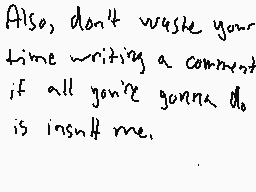 Also, don't waste your
time writing a comment
if all you're gonna do
is insult me.